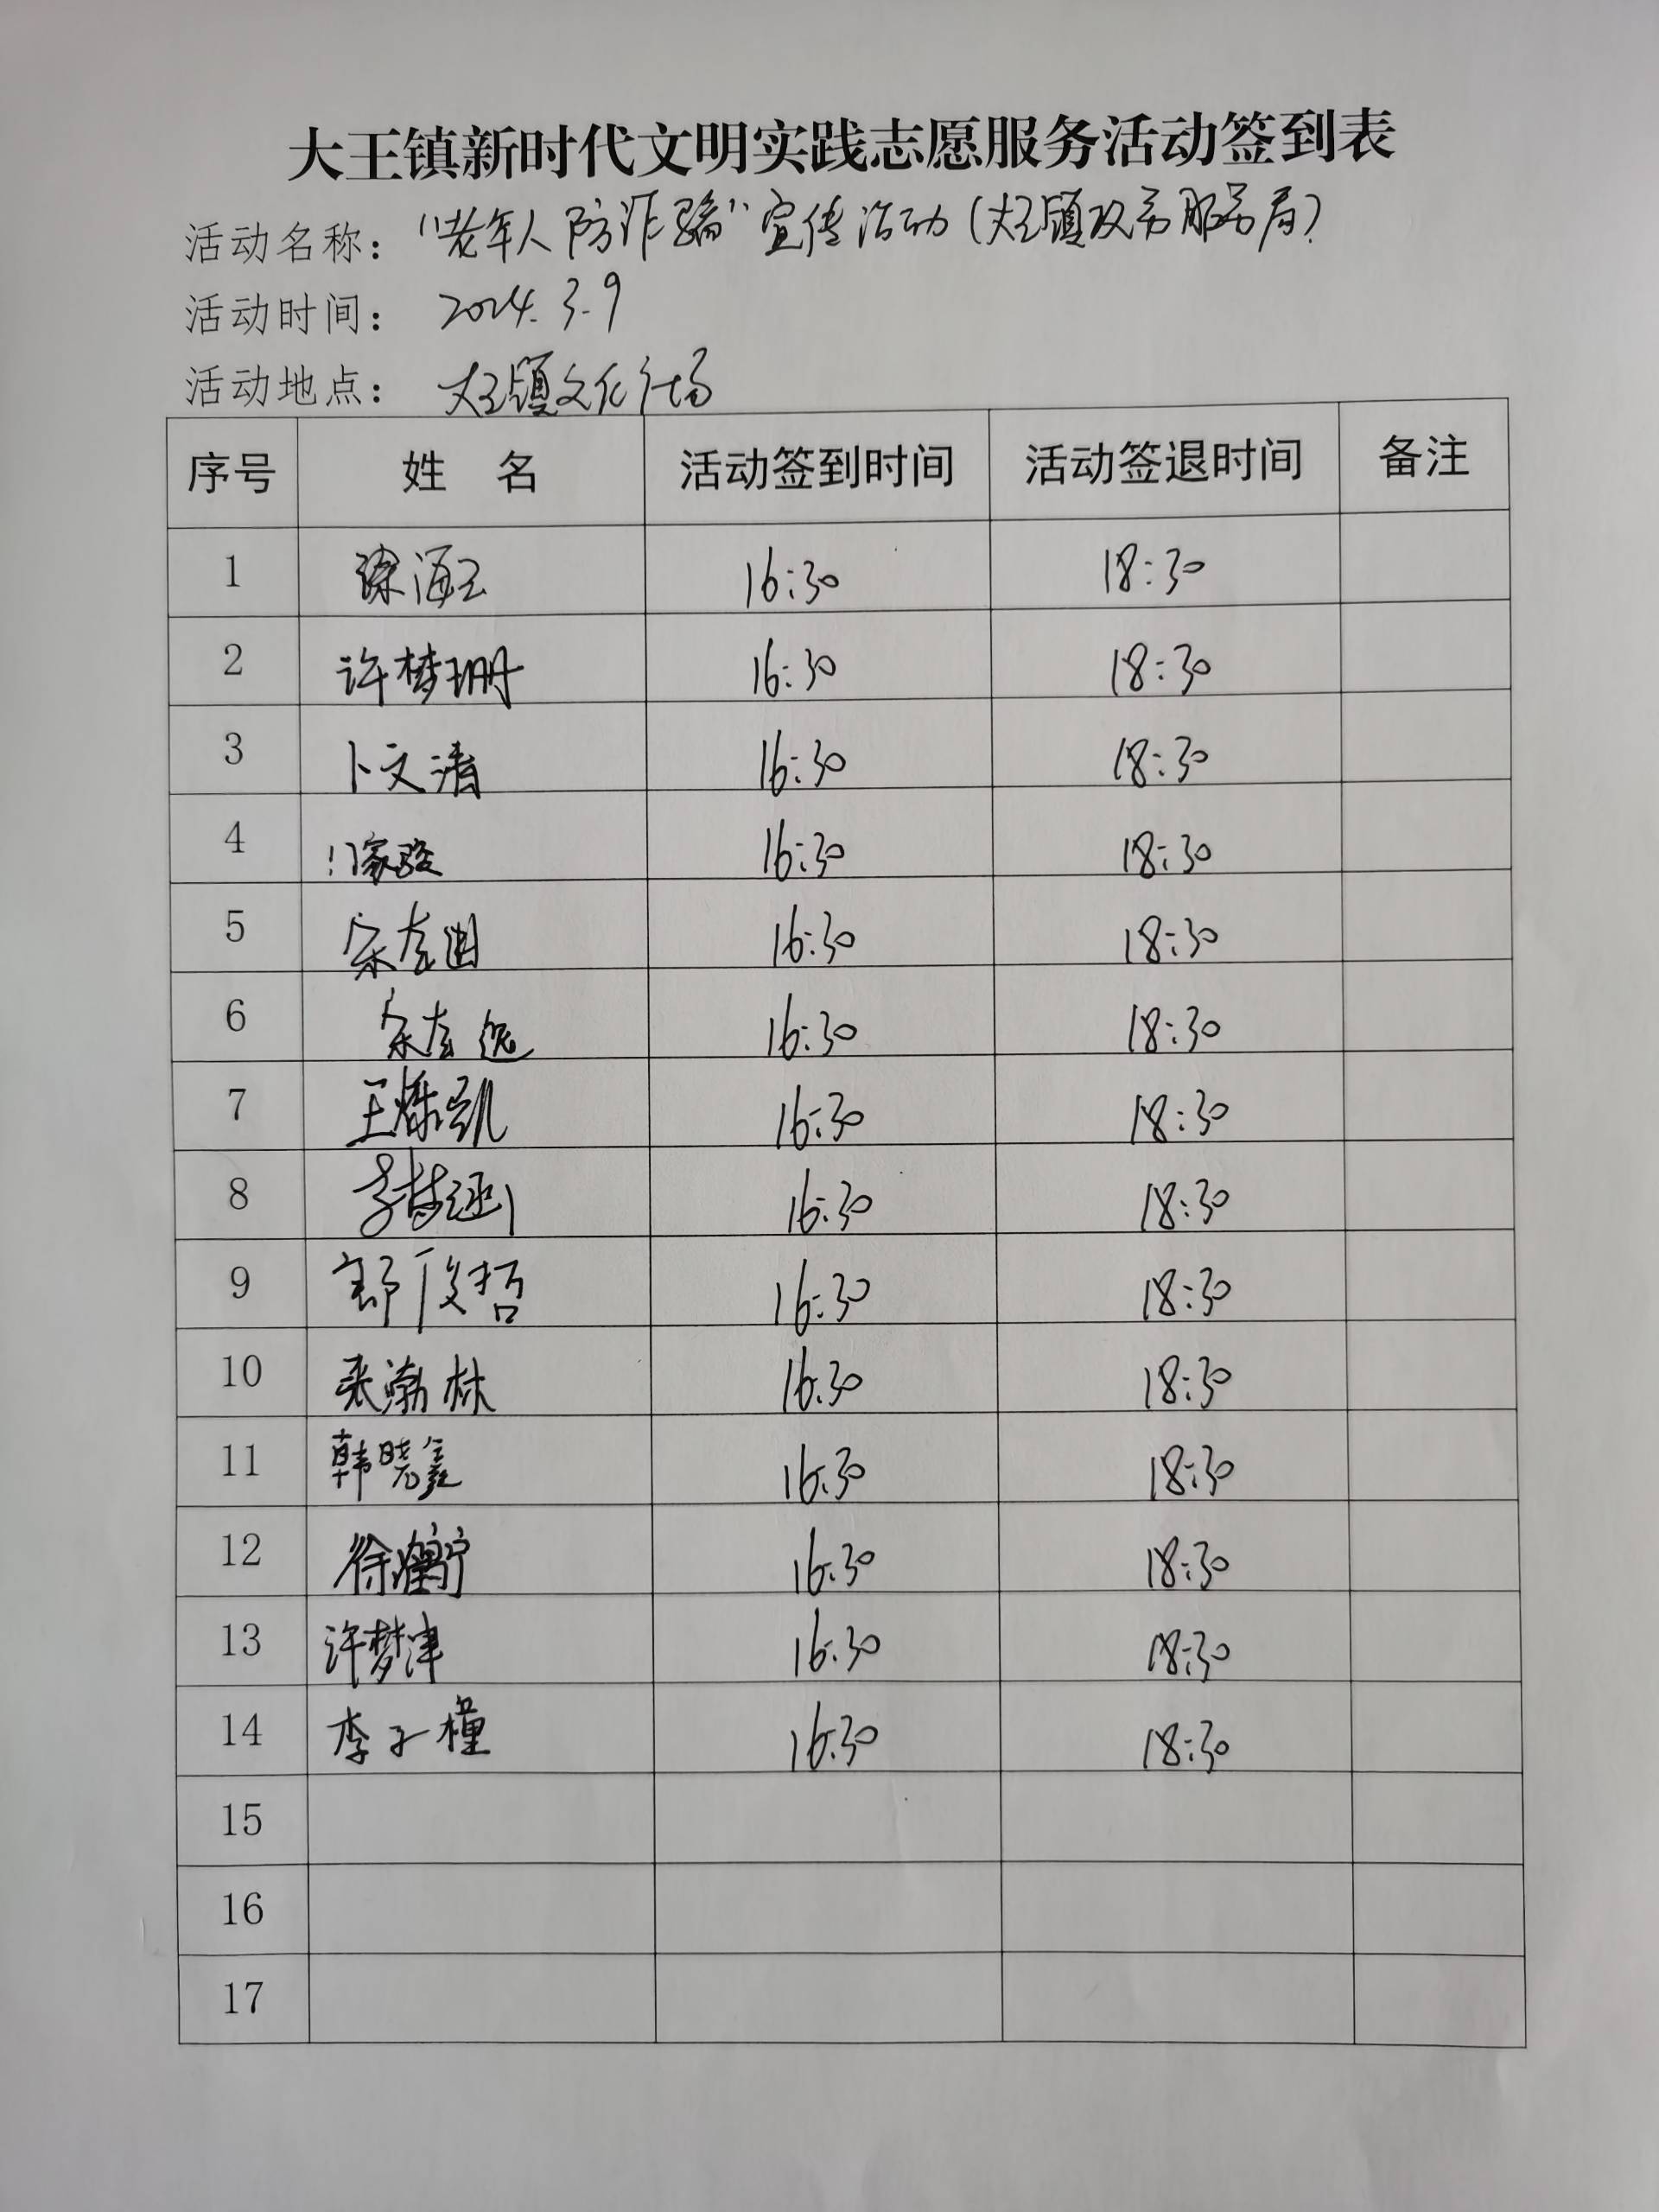 大王镇新时代文明实践志愿服务活动签到表
活动名称： “老年人防诈骗”宣传活动(大王镇政务服务局)
活动时间： 2024.3.9
活动地点： 大王镇文化广场
序号 姓 名 活动签到时间 活动签退时间 备注
1 16:30 18:30
2 许梦珊 16:30 18:30
3 卜文清 16:30 18:30
4 门家骏 16:30 18:30
5 宋 16:30 18:30
6 宋 16:30 18:30
7 王烁凯 16:30 18:30
8 16:30 18:30
9 俊哲 16:30 18:30
10 张渤林 16:30 18:30
11 韩晓鑫 16:30 18:30
12 徐 宁 16:30 18:30
13 许梦津 16:30 18:30
14 李子橦 16:30 18:30
15
16
17